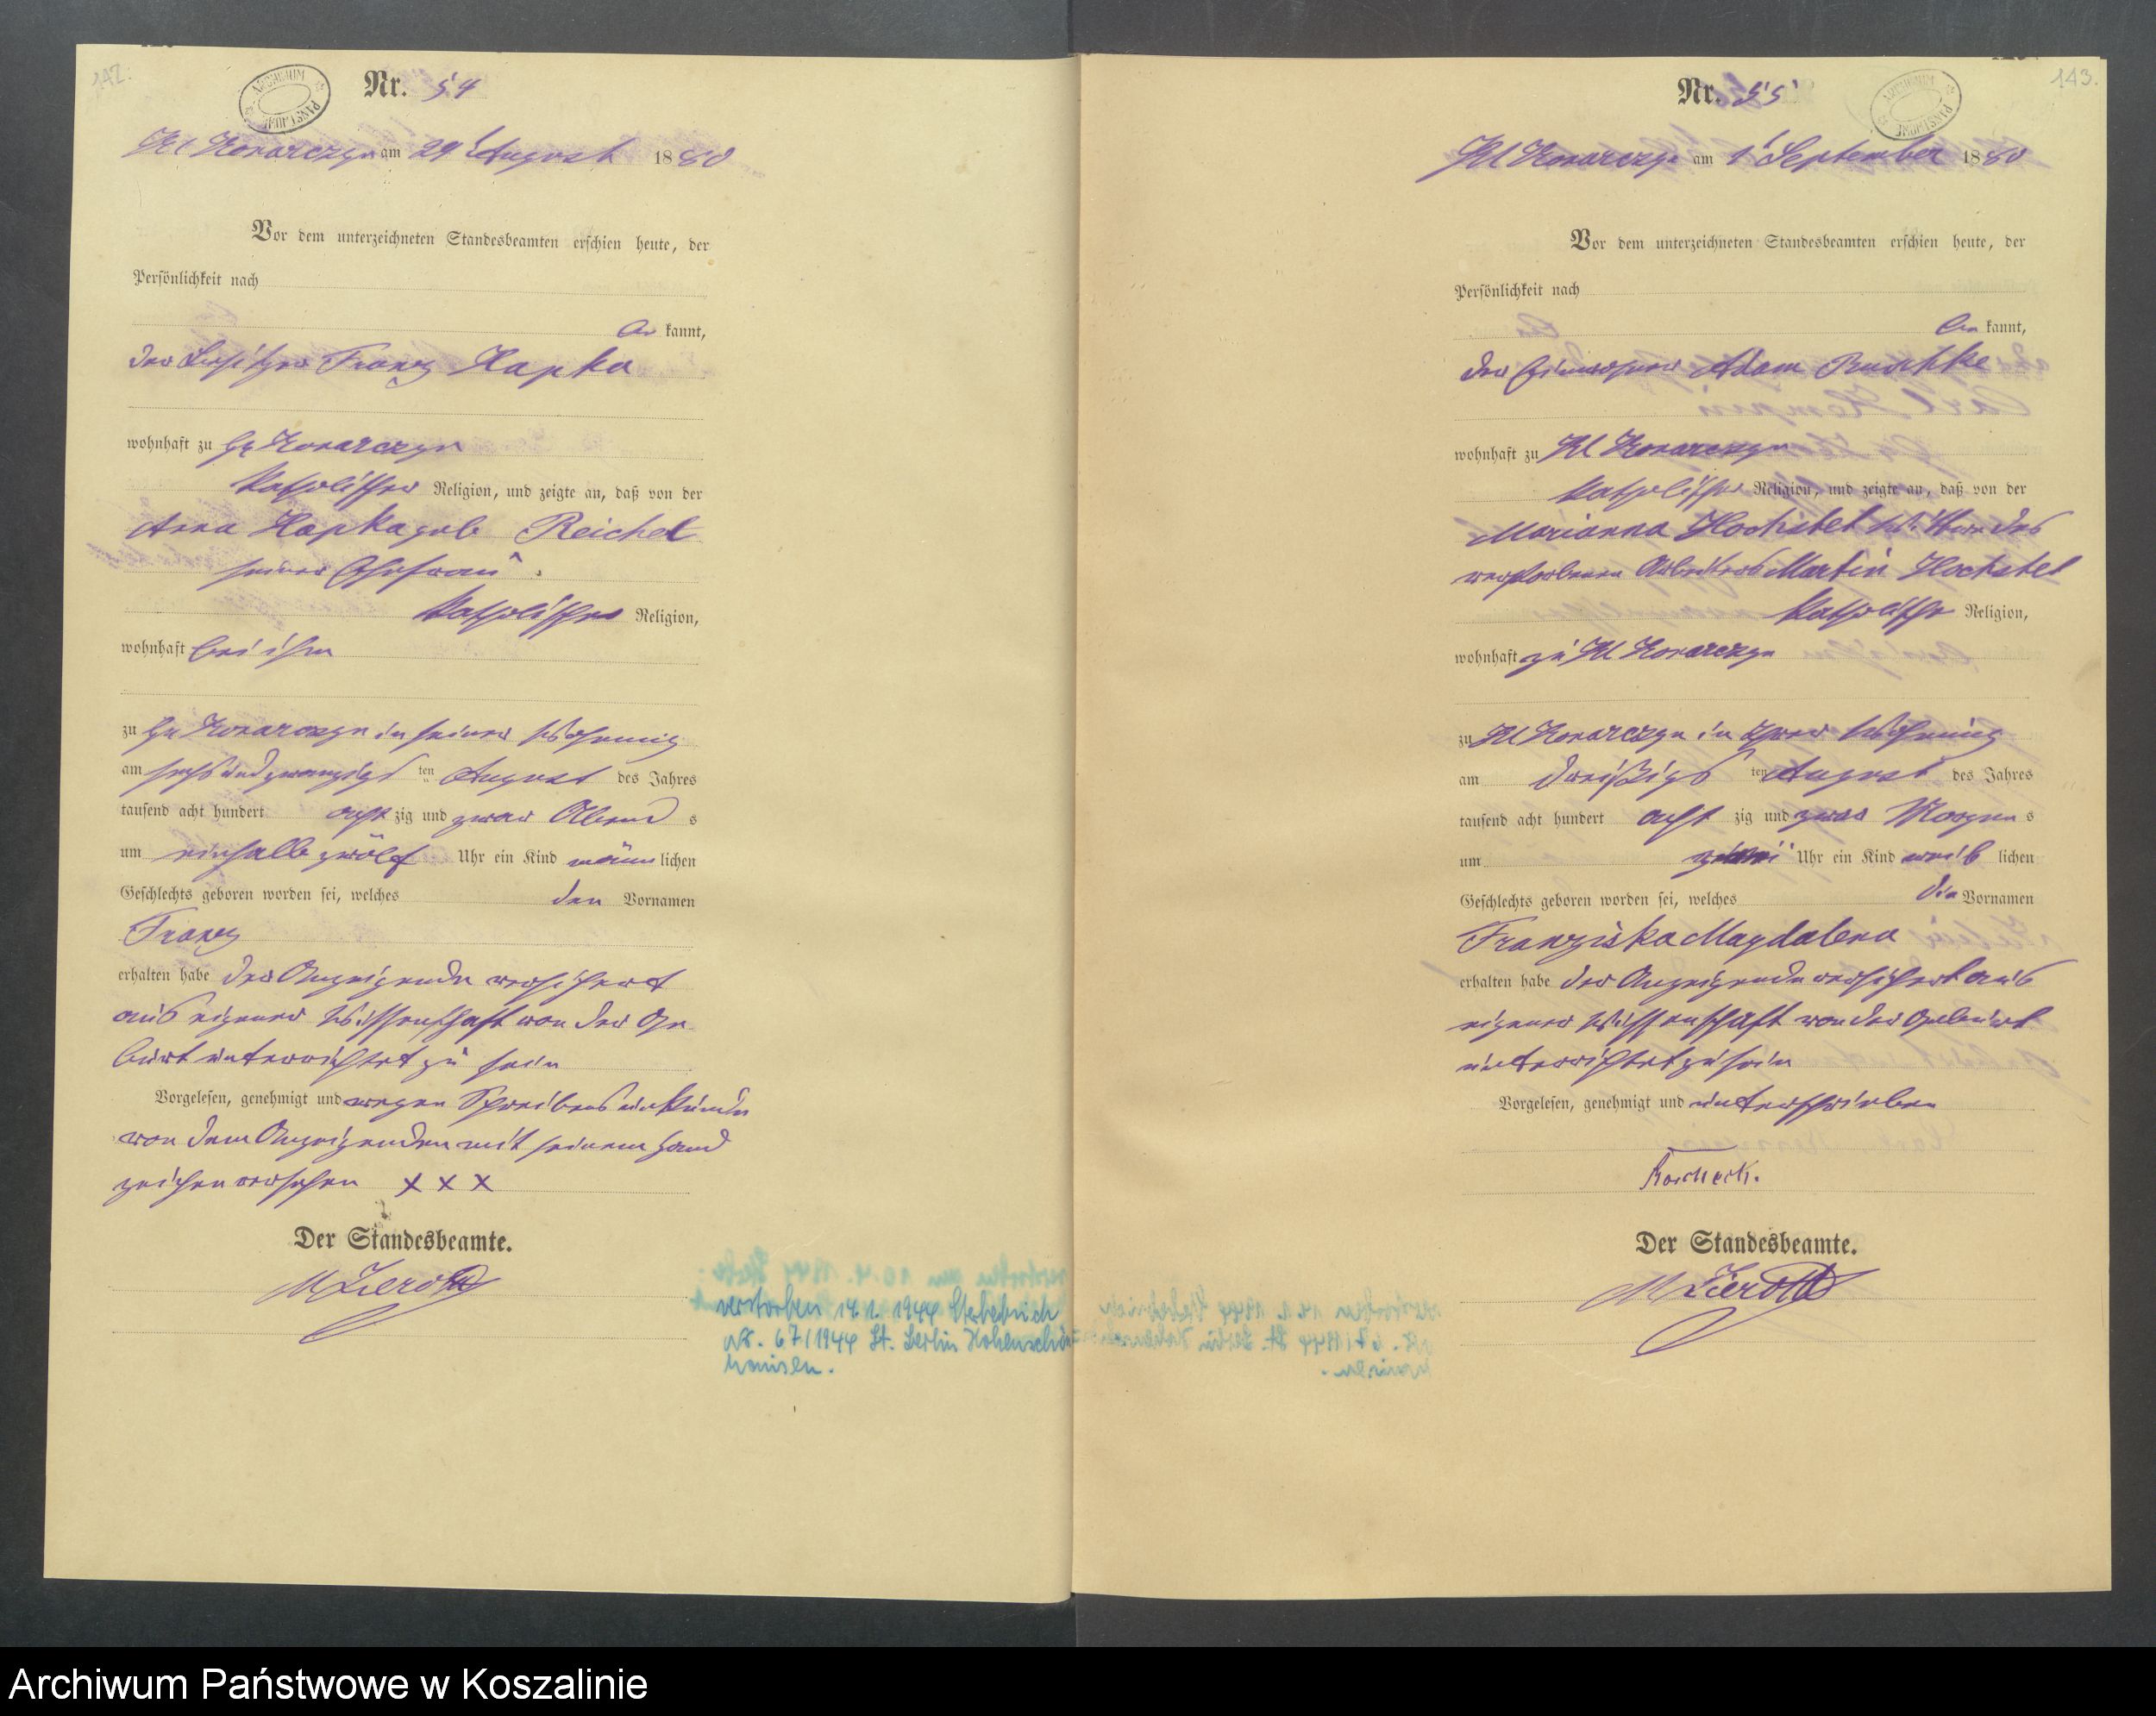 142.
ARCHIWUM PAŃSTWOWE
Nr. 54
Kl Konarczyn am 29 August 1880
Vor dem unterzeichneten Standesbeamten erschien heute, der
Persönlichkeit nach
be kannt,
der Besitzer Franz Hapka
wohnhaft zu Gr Konarczyn
katholischer Religion, und zeigte an, daß von der
Anna Hapka geb Reichel
seiner Ehefrau
katholischer Religion,
wohnhaft bei ihm
zu Gr Konarczyn in seiner Wohnung
am sechsundzwanzigs ten August des Jahres
tausend acht hundert acht zig und zwar Abend s
um einhalb zwölf Uhr ein Kind männ lichen
Geschlechts geboren worden sei, welches den Vornamen
Franz
erhalten habe der Anzeigende versichert
aus eigener Wissenschaft von der Ge
burt unterrichtet zu sein
Vorgelesen, genehmigt und wegen Schreibensunkunde
von dem Anzeigenden mit seinem Hand
zeichen versehen X X X
Der Standesbeamte.
verstorben 14.1.1944 Sterbebuch
Nr. 67/1944 St. Berlin Hohenschön
hausen.
143.
ARCHIWUM PAŃSTWOWE
Nr. 55
Kl Konarczyn am 1 September 1880
Vor dem unterzeichneten Standesbeamten erschien heute, der
Persönlichkeit nach
be kannt,
der Einwohner Adam
wohnhaft zu Kl Konarczyn
katholischer Religion, und zeigte an, daß von der
Marianna Hochstet Wittwe des
verstorbenen Arbeiters Martin Hochstet
katholischer Religion,
wohnhaft zu Kl Konarczyn
zu Kl Konarczyn in ihrer Wohnung
am dreißigs ten August des Jahres
tausend acht hundert acht zig und zwar Morgen s
um zwei Uhr ein Kind weib lichen
Geschlechts geboren worden sei, welches die Vornamen
Franziska Magdalena
erhalten habe der Anzeigende versichert aus
eigener Wissenschaft von der Geburt
unterrichtet zu sein
Vorgelesen, genehmigt und unterschrieben
Der Standesbeamte.
Archiwum Państwowe w Koszalinie